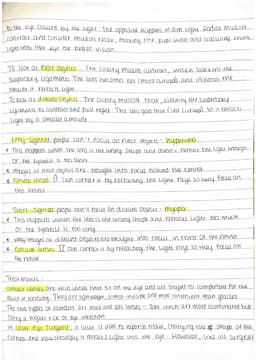 to the eye caused by the light. The opposite happens in dim light. Radial muscles
contract and circular muscles relax, making the pupil wide and allowing more
light into the eye for better vision.
To look at near objects: The ciliary muscles contract, which slackens the
suspensory ligaments. The lens becomes fat (more curved) and increases the
amount it refracts light.
To look at distant objects: The ciliary muscles relax, allowing the suspensory
ligaments to contract and pull tight. The lens goes thin (less curved) so it refracts
light by a smaller amount.
Long-sighted people can't focus on near objects - hyperopia
This happens when the lens is the wrong shape and doesn't refract the light enough
or the eyeball is too short
Images of near objects are brought into focus behind the retina
Convex lenses () can correct it by refracting the light rays so they focus on
the retina
Short-sighted people can't focus on distant objects - myopia
This happens when the lens is the wrong shape and refracts light too much
or the eyeball is too long
images of distant objects are brought into focus in front of the retina
Concave lenses )( can correct it by refracting the light rays so they focus on
the retina
Treatments:
Contact lenses are thin lenses that sit on the eye and are shaped to compensate for the
fault in focusing. They are lightweight, almost invisible and more convenient than glasses.
The two types of contacts are hard and soft lenses - soft lenses are more comfortable but
carry a higher risk of eye infection.
In laser eye surgery, a laser is used to vaporise tissue, changing the shape of the
cornea and how strongly it refracts light into the eye. However, like all surgical